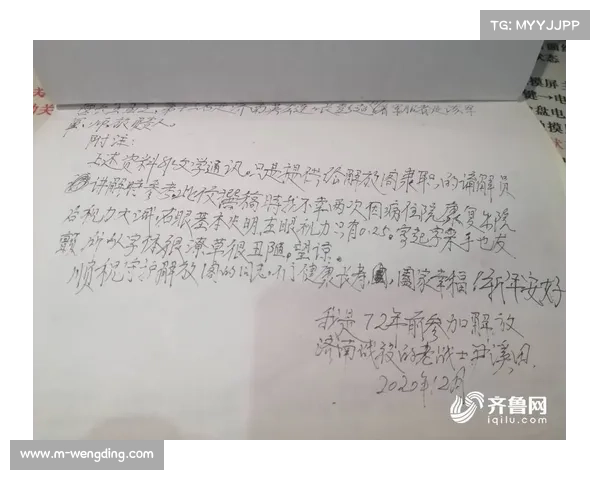 TG: MYYJJPP
附注:
上述资料和文学通讯.只是提供给解放阁兼职的讲解员
讲解时参考.此校 稿时我不幸两次因病住院康复出院
后视力大减.右眼基本失明,左眼视力只有0.25.写起字来手也发
颤,所以字体很潦草很丑陋.望谅.
顺祝守护解放阁的同志们健康长寿, 阖家幸福 新年安好
我是72年前参加解放
济南战役的老战士
2020年12月
齐鲁网
iqilu.com
www.m-wengding.com